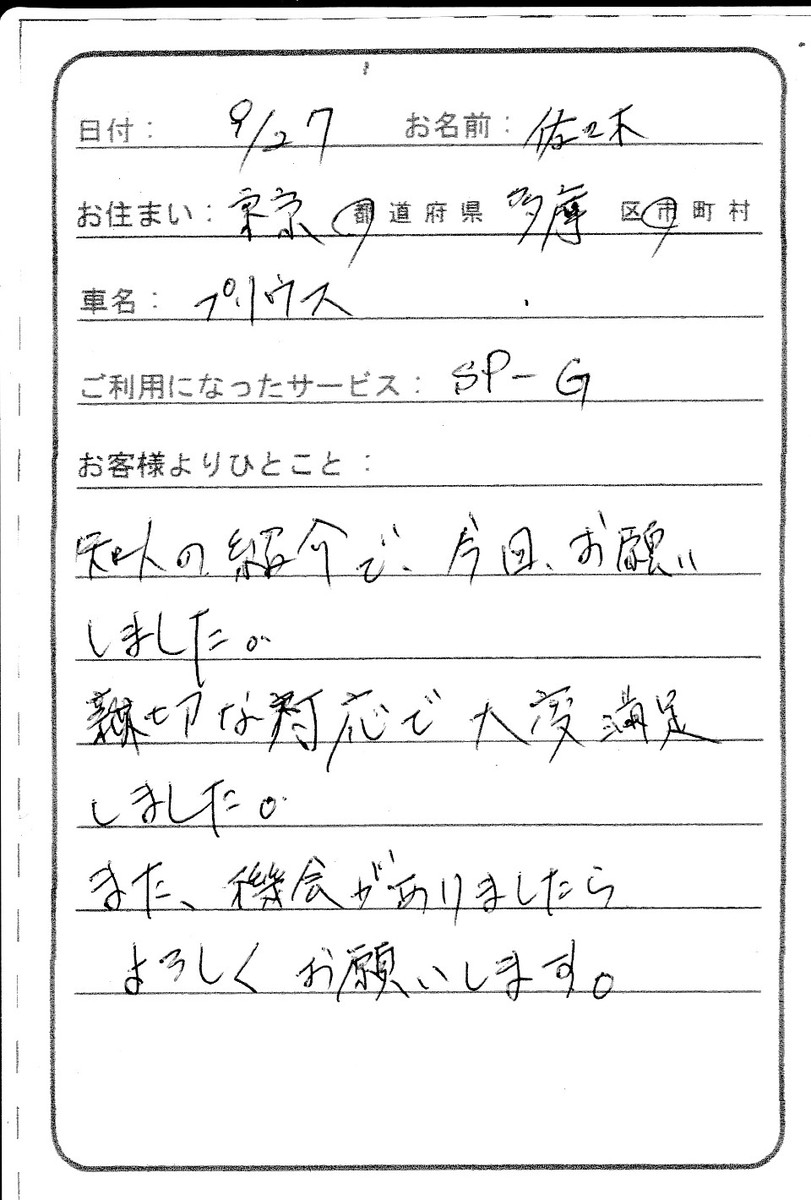 日付： 9/27 お名前： 佐々木
お住まい： 東京 都 道 府 県 多摩 区 市 町 村
車名： プリウス
ご利用になったサービス： SP-G
お客様よりひとこと：
知人の紹介で、今回、お願い
しました。
親切な対応で大変満足
しました。
また、機会がありましたら
よろしくお願いします。